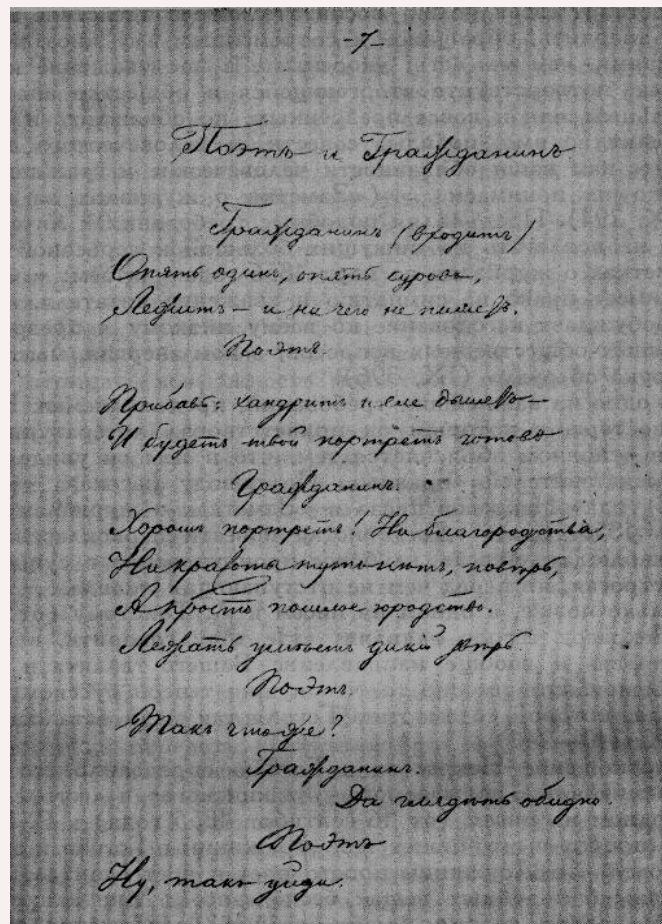 -7-
Поэтъ и Гражданинъ
Гражданинъ (входитъ)
Опять одинъ, опять суровъ,
Лежитъ – и ничего не пишетъ.
Поэтъ.
Прибавь: хандритъ и еле дышетъ –
И будетъ твой портретъ готовъ
Гражданинъ.
Хорошъ портретъ! Ни благородства,
Ни красоты тутъ нѣтъ, повѣрь,
А просто пошлое юродство.
Лежать умѣетъ дикій звѣрь.
Поэтъ.
Такъ что же?
Гражданинъ.
Да глядѣть обидно.
Поэтъ
Ну, такъ уйди.